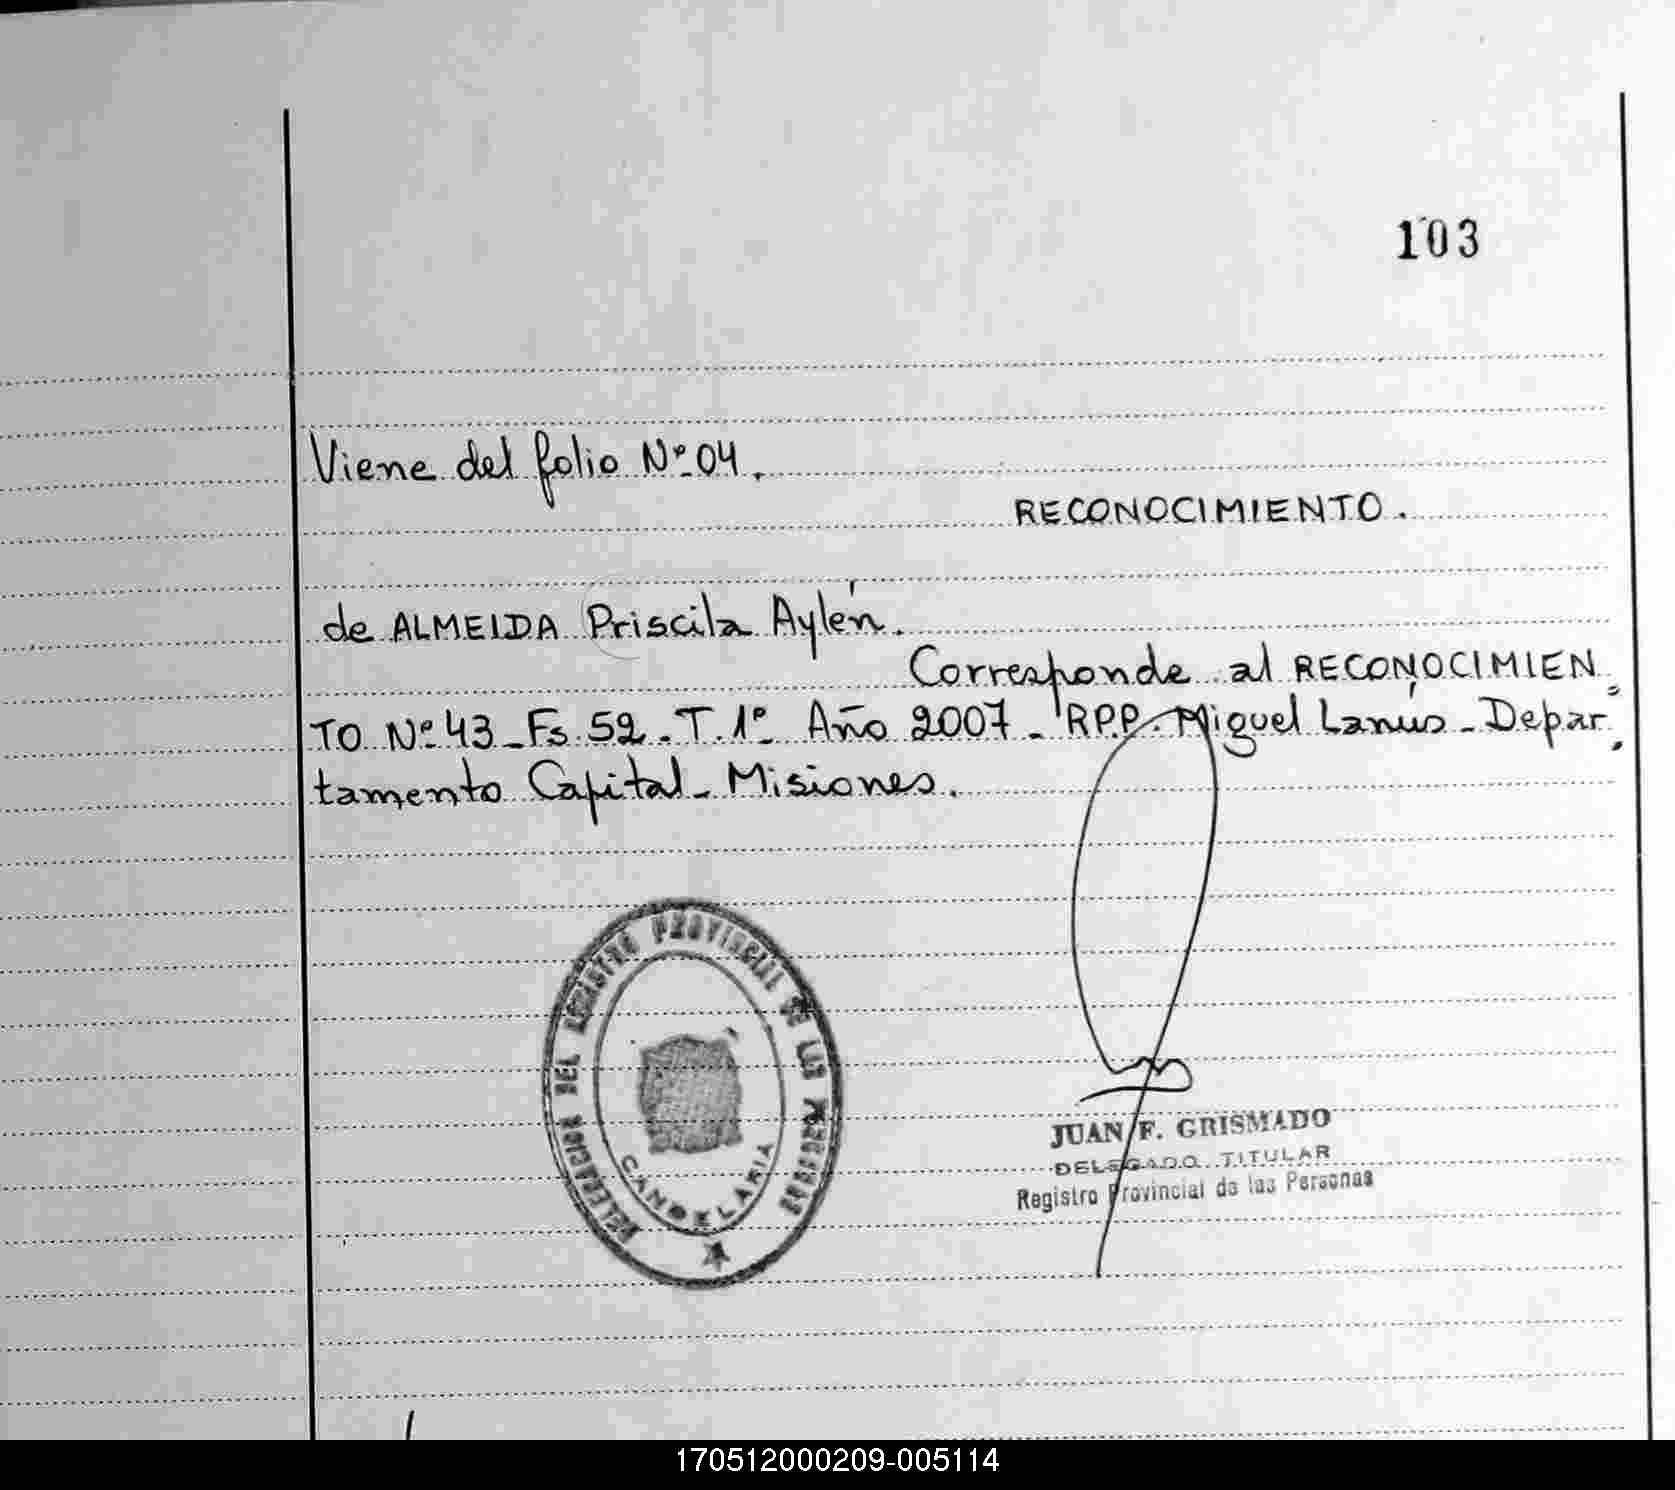 103
Viene del folio Nº 04.
RECONOCIMIENTO.
de ALMEIDA Priscila Aylén.
Corresponde al RECONOCIMIEN
TO Nº 43 - Fs. 52 - T. 1º Año 2007 - RPP. Miguel Lanús - Depar
tamento Capital - Misiones.
DELEGACION DEL REGISTRO PROVINCIAL DE LAS PERSONAS
CANDELARIA
JUAN F. GRISMADO
DELEGADO TITULAR
Registro Provincial de las Personas
170512000209-005114